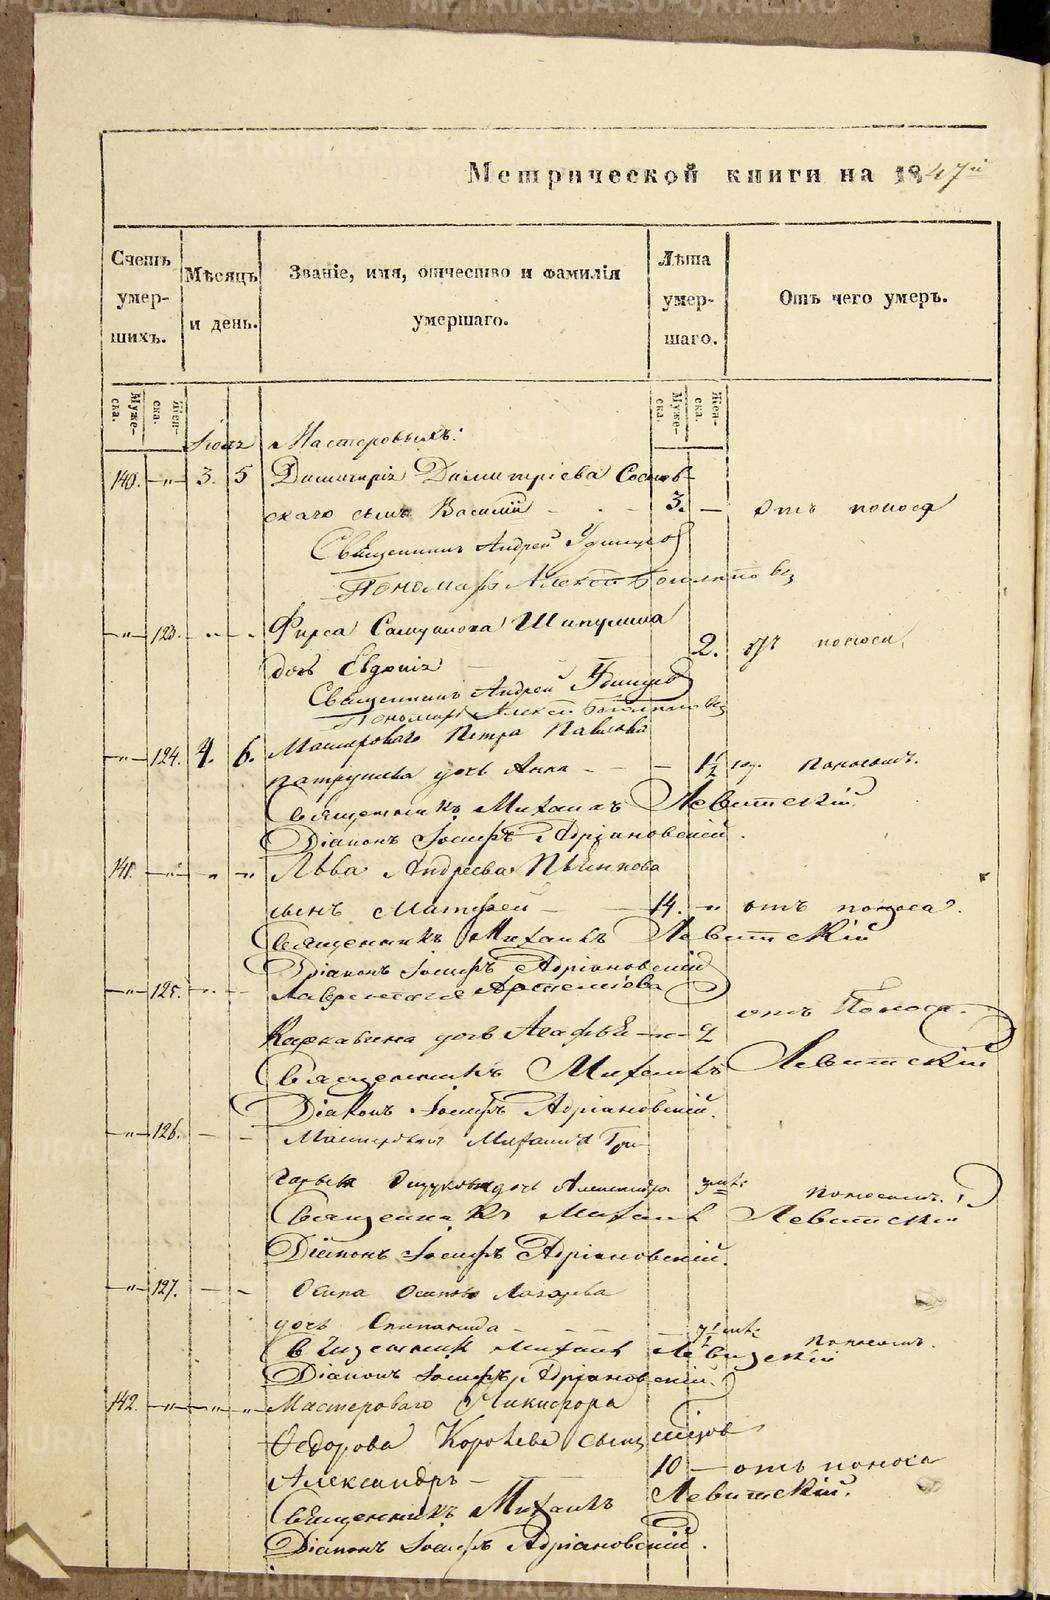 Метрической книги на 1847й
Счетъ умер-шихъ.
Мѣсяцъ и день.
Званіе, имя, отчество и фамилія умершаго.
Лѣта умер-шаго.
Отъ чего умеръ.
Муже-ска. Жен-ска.
Муже-ска. Жен-ска.
Мастеровыхъ:
140. —„— 3. 5 Димитрія Димитріева Соснов-
скаго сынъ Василій 3. — отъ поноса
Священникъ Андрей
Пономарь Алексѣй
—„— 123. Фирса Самуилова Шипулина
дочь Евдокія 2. отъ поноса
Священникъ Андрей
Пономарь Алексѣй
—„— 124. 4. 6. Мастероваго Петра Павлова
Патрушева дочь Анна — 1½ год. поносомъ.
Священникъ Михаилъ Левитскій
Діаконъ Іосифъ Адріановскій.
141. —„— „ —„ Льва Андреева Пьянкова
сынъ Матфей — 14. —„ отъ поноса.
Священникъ Михаилъ Левитскій
Діаконъ Іосифъ Адріановскій
—„— 125. Лаврентія Артеміева
дочь Агафья —„— 2 отъ поноса.
Священникъ Михаилъ Левитскій
Діаконъ Іосифъ Адріановскій.
—„— 126. Михаила Гри-
горьева дочь Александра поносомъ.
Священникъ Михаилъ Левитскій
Діаконъ Іосифъ Адріановскій.
—„— 127. Осипа Осипова Лазарева
дочь поносомъ.
Священник Михаилъ Левицкій
Діаконъ Іосифъ Адріановскій.
142. —„— „ —„ Мастероваго Никифора
Федорова Королева сынъ
Александръ — 10 — отъ поноса
Священникъ Михаилъ Левитскій.
Діаконъ Іосифъ Адріановскій.
METRIKI.GASO-URAL.RU